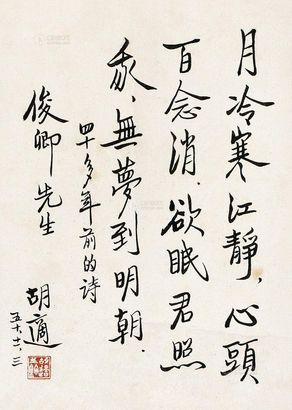 月冷寒江靜，心頭
百念消．欲眠君照
我，無夢到明朝．
四十多年前的詩
俊卿先生
胡適
五十、十一、三